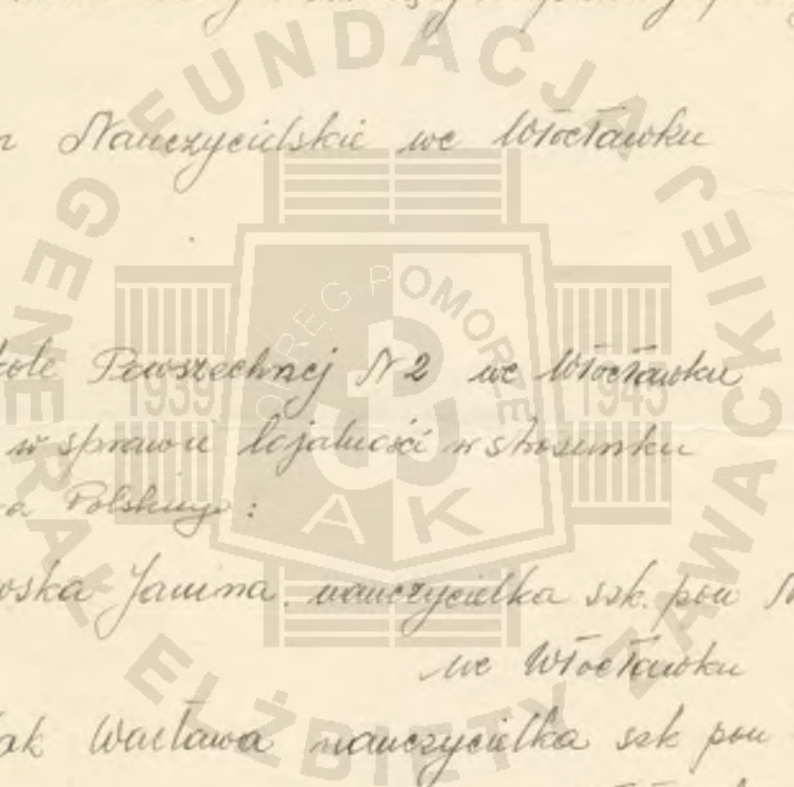 Nauczycielskie we Włocławku
Powszechnej N 2 we Włocławku
w sprawie lojalności w stosunku
a Polskiego :
wska Janina. nauczycielka szk. pow
we Włocławku
ak Wacława nauczycielka szk pow
FUNDACJA GENERAŁ ELŻBIETY ZAWACKIEJ
OKRĘG POMORZE
1939 1945
AK